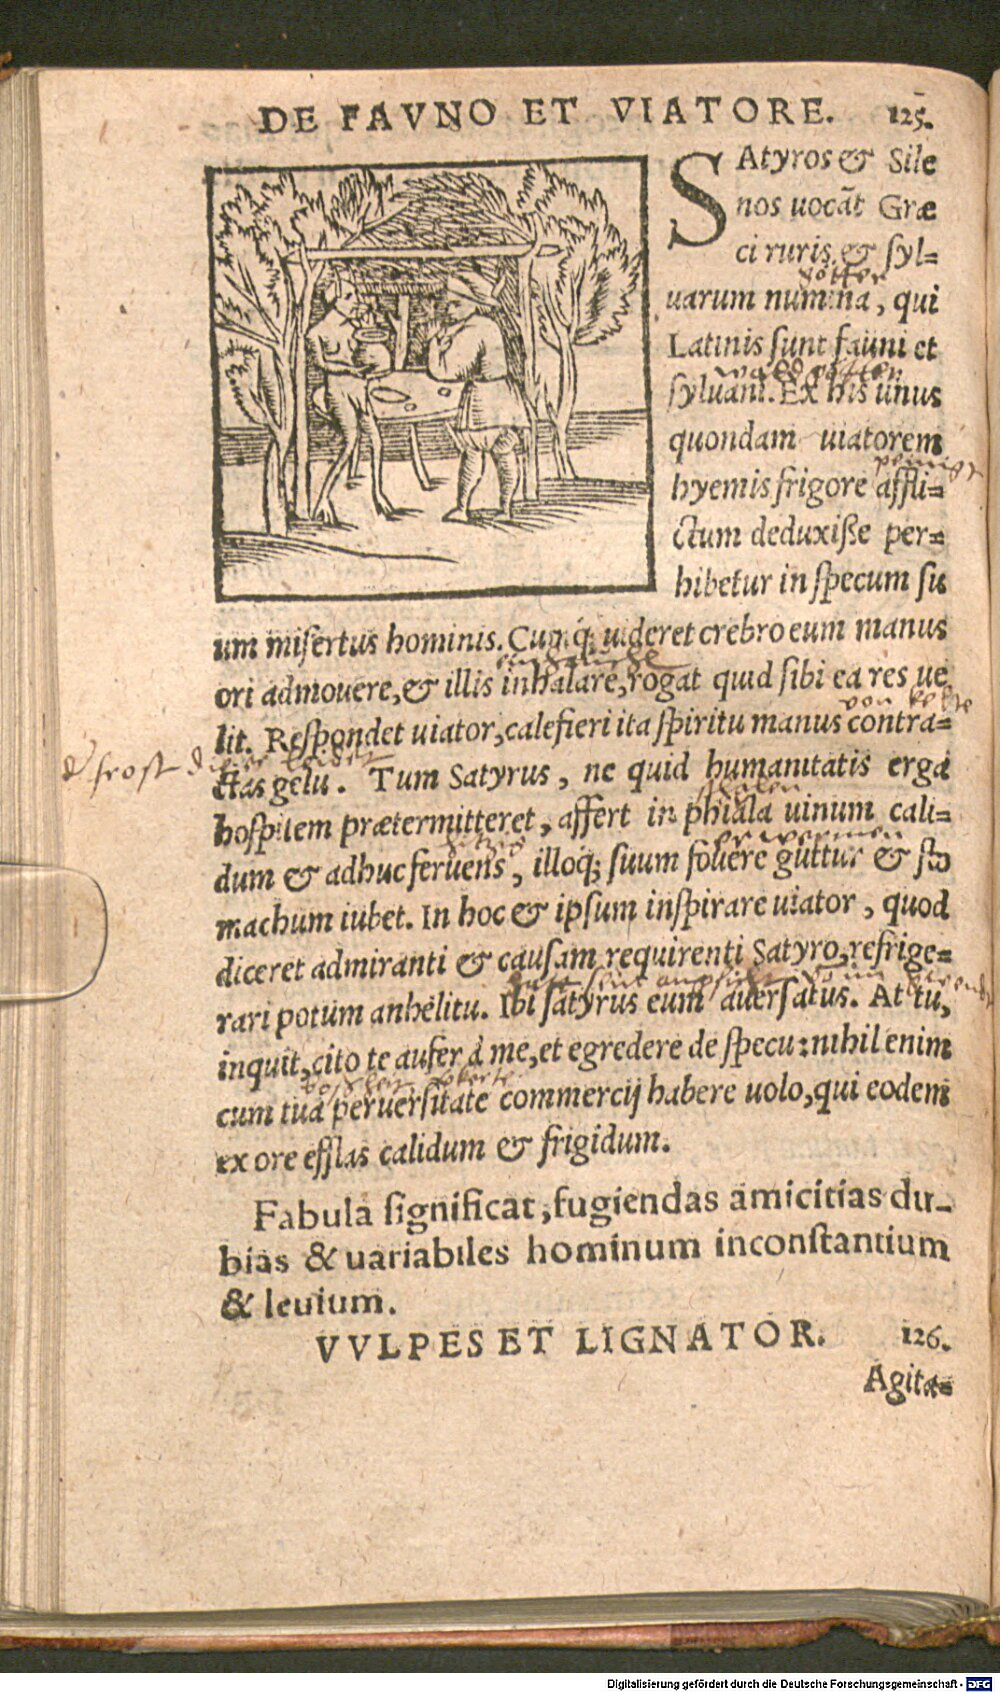 DE FAVNO ET VIATORE. 125.
SAtyros & Sile
nos uocāt Græ
ci ruris, & syl=
götter
uarum numina, qui
Latinis sunt fauni et
waldgötter
syluani. Ex his unus
quondam uiatorem
hyemis frigore affli=
ctum deduxiſſe per=
hibetur in specum su
um misertus hominis. Cumq; uideret crebro eum manus
ori admouere, & illis inhalare, rogat quid sibi ea res ue
lit. Respondet uiator, calefieri ita spiritu manus contra=
frost
ctas gelu. Tum Satyrus, ne quid humanitatis erga
hospitem prætermitteret, affert in phiala uinum cali=
erwermen
dum & adhuc feruens, illoq; suum fouere guttur & sto
machum iubet. In hoc & ipsum inspirare uiator, quod
diceret admiranti & causam requirenti Satyro, refrige=
rari potum anhelitu. Ibi satyrus eum auersatus. At tu,
inquit, cito te aufer à me, et egredere de specu: nihil enim
cum tua peruersitate commercij habere uolo, qui eodem
ex ore efflas calidum & frigidum.
Fabula significat, fugiendas amicitias du-
bias & uariabiles hominum inconstantium
& leuium.
VVLPES ET LIGNATOR. 126.
Agita=
Digitalisierung gefördert durch die Deutsche Forschungsgemeinschaft - DFG